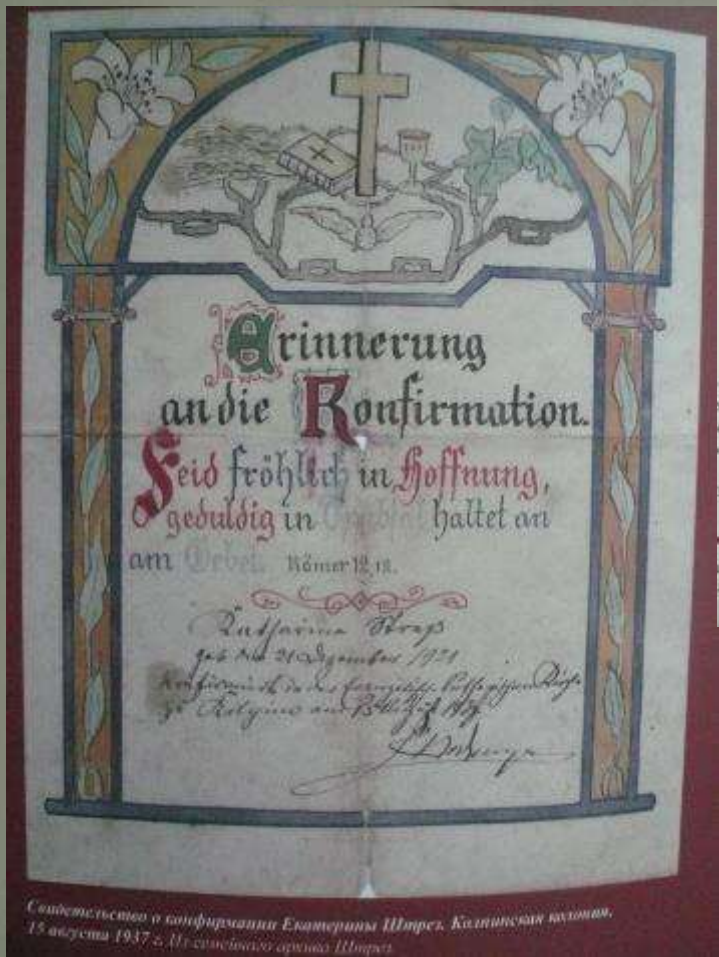 Erinnerung
an die Konfirmation.
Seid fröhlich in Hoffnung,
geduldig in Trübsal haltet an
am Gebet. Römer 12,12.
Katharina Streß
geb. den 21 Dezember 1921
konfirmiert in der Evangelisch-Lutherischen Kirche
zu Kolpino am 15 August 1937
Свидетельство о конфирмации Екатерины Штрез. Колпинская колония.
15 августа 1937 г. Из семейного архива Штрез.